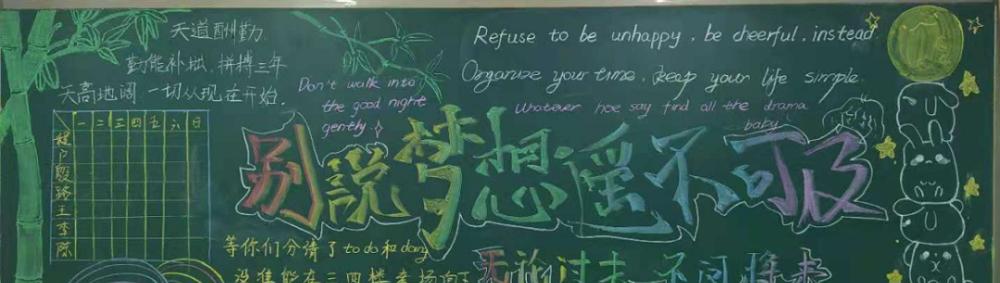 天道酬勤
勤能补拙，拼搏三年
天高地阔 一切从现在开始.
Refuse to be unhappy, be cheerful, instead.
Organize your time, keep your life simple.
Don't walk into
the good night
gently
Whatever hoe say find all the drama
baby
一 二 三 四 五 六 日
程
户
殷
路
王
李
陈
别說梦想遥不可及
等你们分清了 to do 和 doing
没准能在三四楼
无论过去 不问将来